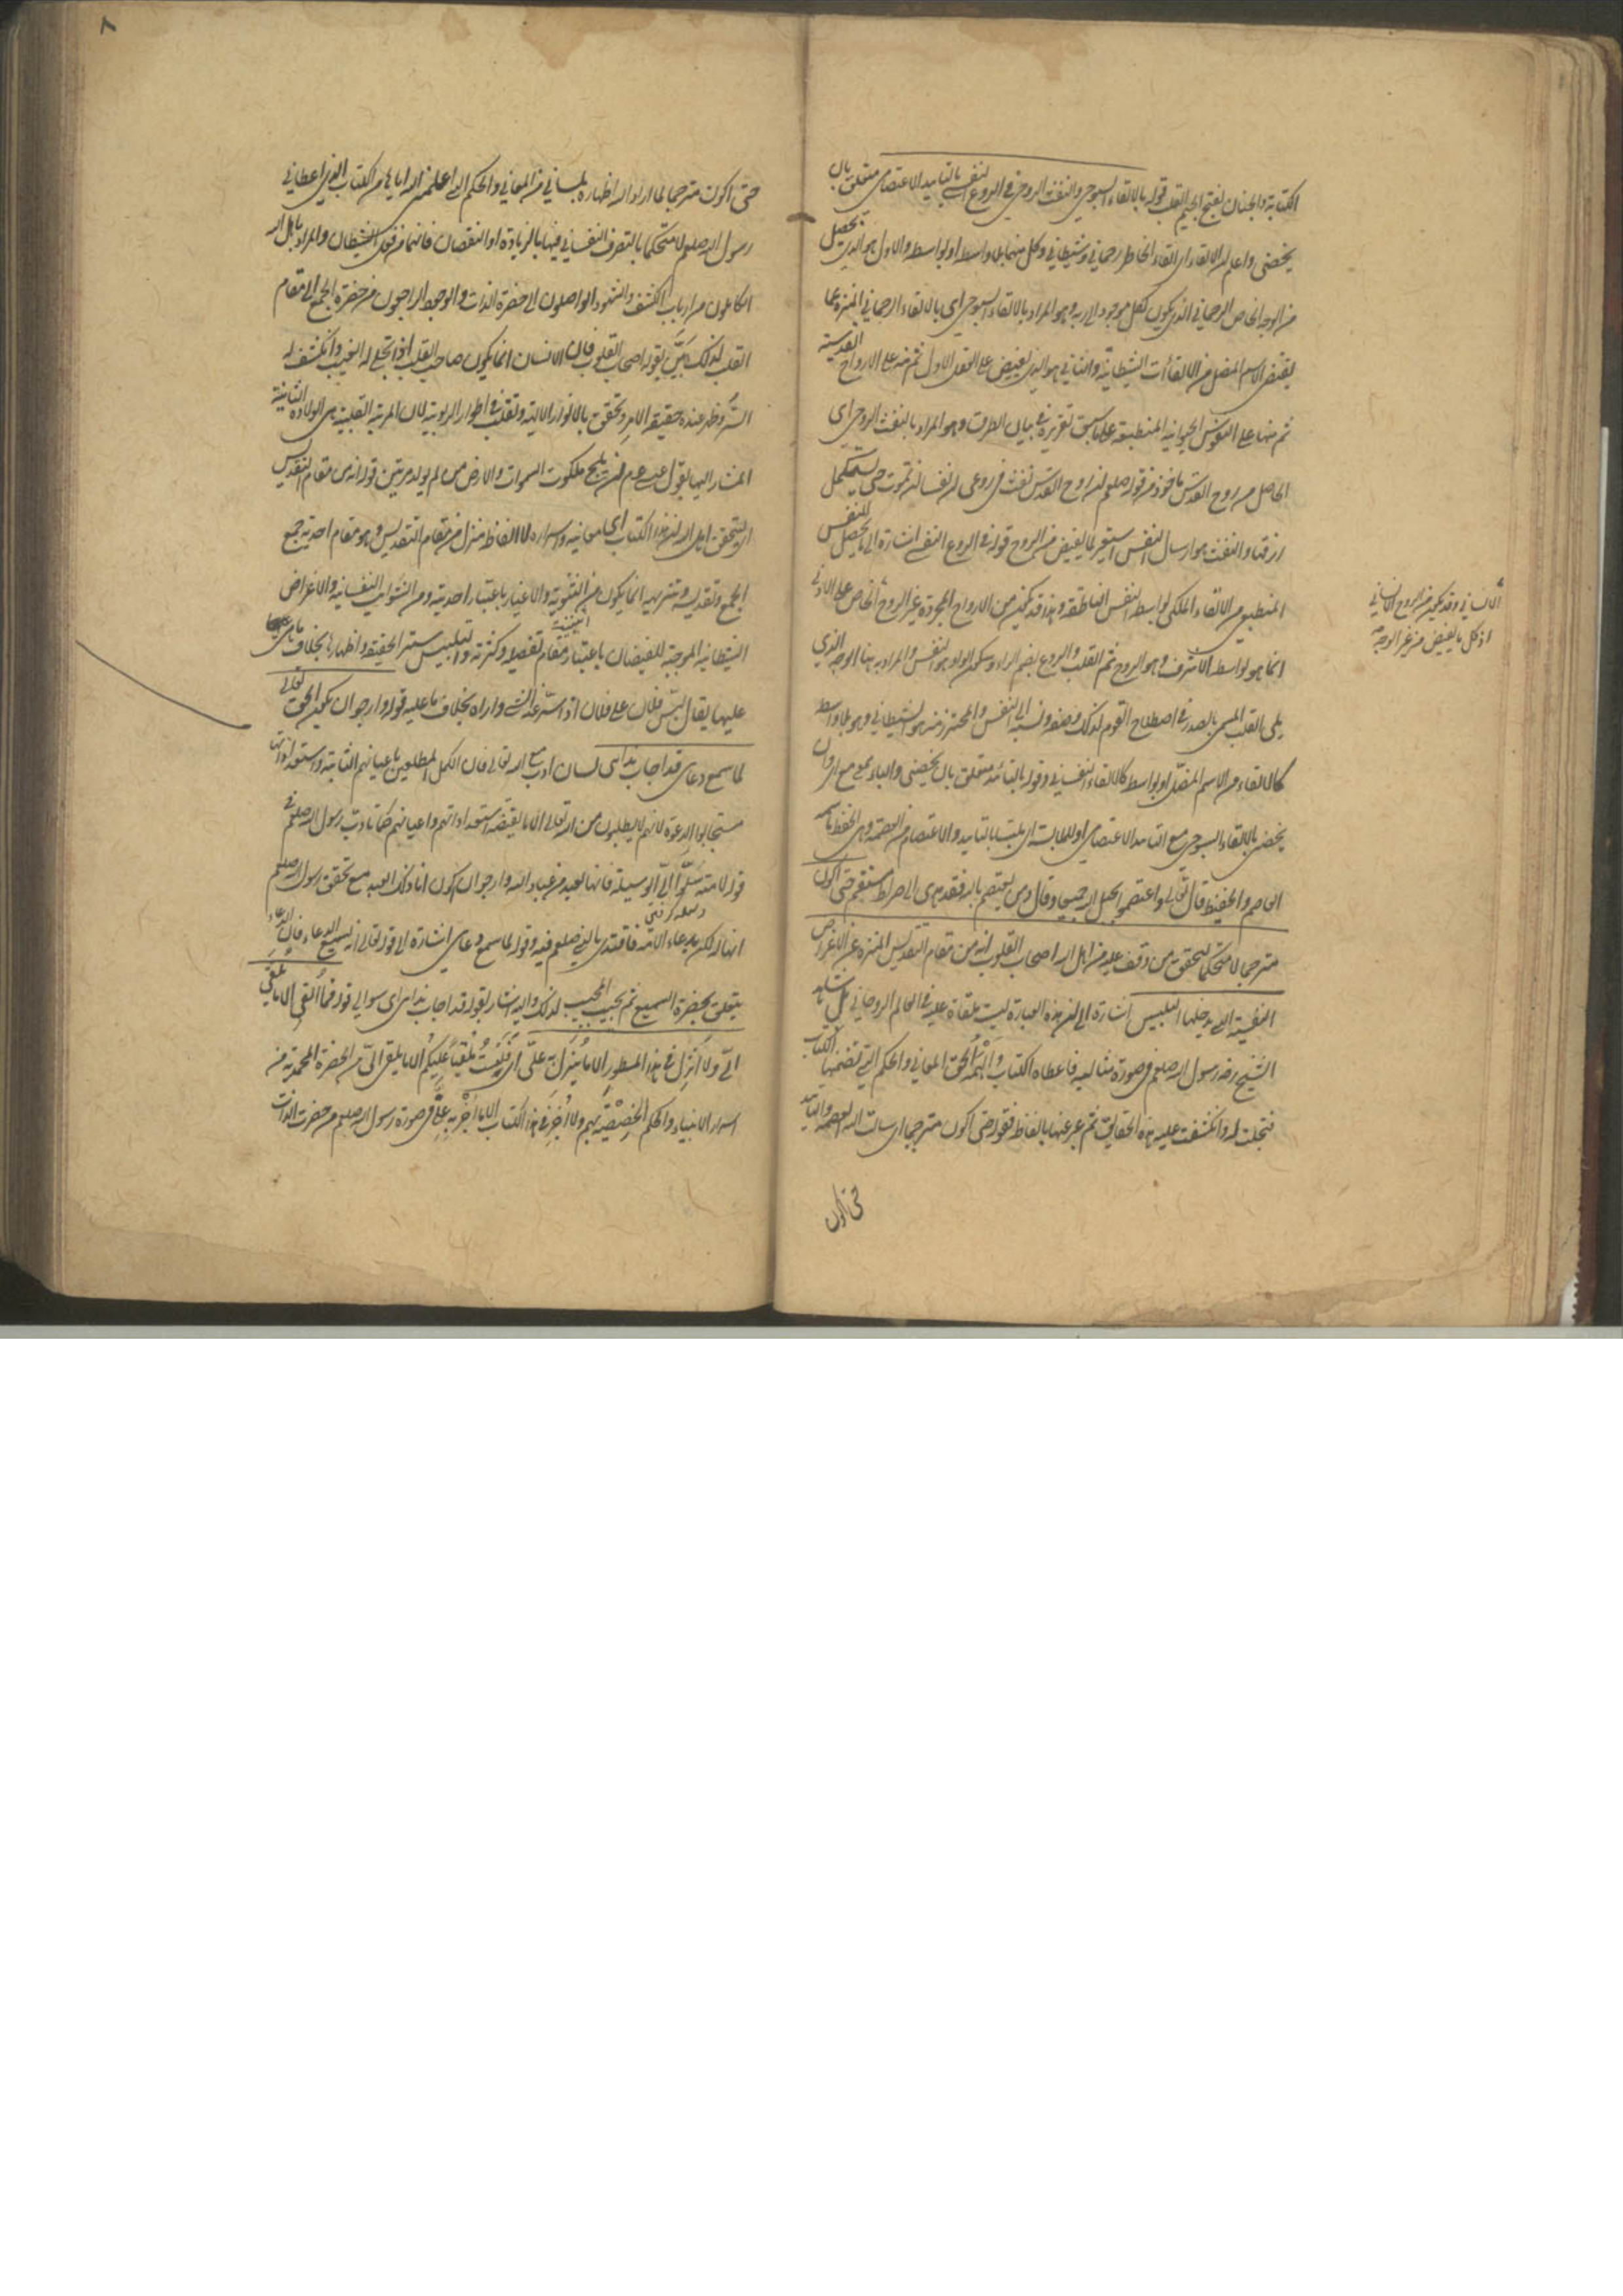 الكتابة والجنان بفتح الجيم القلب قوله بالالقاء السبوحي والنفث الروحي في الروع النفسي بالتاييد الاعتصامي متعلق بان
يخصني واعلم ان الالقاء اي القاء الخاطر رحماني وشيطاني وكل منهما بلا واسطه او بواسطه والاول هو الذي يحصل
من الوجه الخاص الرحماني الذي يكون لكل موجود الى ربه وهو المراد بالالقاء السبوحي اي بالالقاء الرحماني المنزه عما
يقتضي الاسم المضل من الالقاءات الشيطانية والثاني هو الذي يفيض على العقل الاول ثم منه على الارواح القدسية
ثم منها على النفوس الحيوانية المنطبعة على ما سبق تقريره في بيان الطرق وهو المراد بالنفث الروحي اي
الحاصل من روح القدس ماخوذ من قوله صلعم ان روح القدس نفث في روعي ان نفسا لن تموت حتى تستكمل
رزقها والنفث هو ارسال النفس استعير لما يفيض من الروح قوله في الروع النفسي اشارة الى ما يحصل للنفس
المنطبعة من الالقاء الملكي بواسطه النفس الناطقة وهذا قد يكون من الارواح المجردة غير الروح الخاص على الادنى
انما هو بواسطه الاشرف وهو الروح ثم القلب والروع بضم الراء وسكون الواو هو النفس والمراد به هنا الوجه الذي
يلي القلب المسمى بالصدر في اصطلاح القوم لذلك وصفه ونسبه الى النفس والمحترز منه هو الشيطاني وهو بلا واسطه
كالالقاء من الاسم المضل او بواسطه كالالقاء النفسي وقوله بالتاييد متعلق بان يخصني والباء بمعنى مع اي وان
يخصني بالالقاء السبوحي مع التاييد الاعتصامي او للملابسة اي ملتبسا بالتاييد والاعتصام من العصمة وهي الحفظ باسمه
العاصم والحفيظ قال تعالى واعتصموا بحبل الله جميعا وقال ومن يعتصم بالله فقد هدي الى صراط مستقيم حتى اكون
مترجما لا متحكما ليتحقق به من وقف عليه من اهل الله اصحاب القلوب انه من مقام التقديس المنزه عن الاغراض
النفسية التي يدخلها التلبيس اشارة الى ان هذه العبارة ليست ملقاة عليه في العالم الروحاني بل شاهد
الشيخ رضه رسول الله صلعم في صورة مثالية فاعطاه الكتاب والهمه الحق المعاني والحكم التي تضمنها الكتاب
فتجلت له وانكشفت عليه هذه الحقايق ثم عبر عنها بالفاظه فقوله حتى اكون مترجما اي سالت الله العصمة والتاييد
حتى اكون
الانساني وقد يكون من الروح الانساني
اذ كل ما يفيض من غير الوجه
٨
حتى اكون مترجما لما اراد الله اظهاره بلساني من المعاني والحكم التي اعلمني الله اياها من الكتاب الذي اعطاني
رسول الله صلعم لا متحكما بالتصرف النفساني فيها بالزيادة او النقصان فانهما من فعل الشيطان والمراد باهل الله
الكاملون من ارباب الكشف والشهود الواصلون الى حضرة الذات والوجود الراجعون من حضرة الجمع الى مقام
القلب لذلك بين بقوله اصحاب القلوب فان الانسان انما يكون صاحب القلب اذا تجلى له الغيب وانكشف له
السر وظهر عنده حقيقة الامر وتحقق بالانوار الالهية وتقلب في اطوار الربوبية لان المرتبة القلبية هي الولادة الثانية
المشار اليها بقول عيسى عم لن يلج ملكوت السموات والارض من لم يولد مرتين قوله انه من مقام التقديس
اي ليتحقق اهل الله ان هذا الكتاب اي معانيه واسراره لا الفاظه منزل من مقام التقديس وهو مقام احدية جمع
الجمع وتقديسه وتنزيهه انما يكون من الثنوية والاغيار باعتبار احديته ومن الشوايب النفسانية والاغراض
الشيطانية الموجبة للنقصان باعتبار مقام تفصيله وكثرته والتلبيس ستر الحقيقة واظهارها بخلاف ما هي عليها
عليها يقال لبس فلان على فلان اذا ستر عنه الشي واراه بخلاف ما عليه قوله وارجو ان يكون الحق تعالى
لما سمع دعاي قد اجاب ندائي لسان ادب مع الله تعالى فان الكمل المطلعين باعيانهم الثابتة واستعداداتها
مستجابوا الدعوة لانهم لا يطلبون من الله تعالى الا ما يقتضيه استعداداتهم واعيانهم كما تادب رسول الله صلعم في
قوله لامته سلوا لي الوسيلة فانها لعبد من عباد الله وارجو ان اكون انا ذلك العبد مع تحقق رسول الله صلعم
انها له لكن بدعاء الامة فاقتدى بالنبي صلعم فيه وقوله لما سمع دعاي اشارة الى قوله تعالى انه لسميع الدعاء فان الدعاء
يتعلق بحضرة السميع ثم يجيب المجيب لذلك واليه اشار بقوله قد اجاب ندائي اي سوالي قوله فما القي الا ما يلقى
الي ولا انزل في هذا المسطور الا ما ينزل به علي اي لست ملقيا عليكم الا ما يلقى الي من الحضرة المحمدية من
اسرار الانبياء والحكم الخصيصة بهم ولا اخبر في هذا الكتاب الا ما اخبر به علي في صورة رسول الله صلعم من حضرت الذات